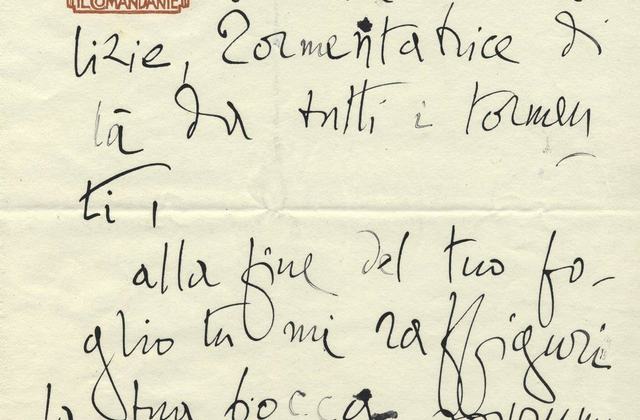 IL COMANDANTE
lizie, Tormentatrice di
là da tutti i tormen
ti,
alla fine del tuo fo-
glio tu mi raffiguri
la tua bocca